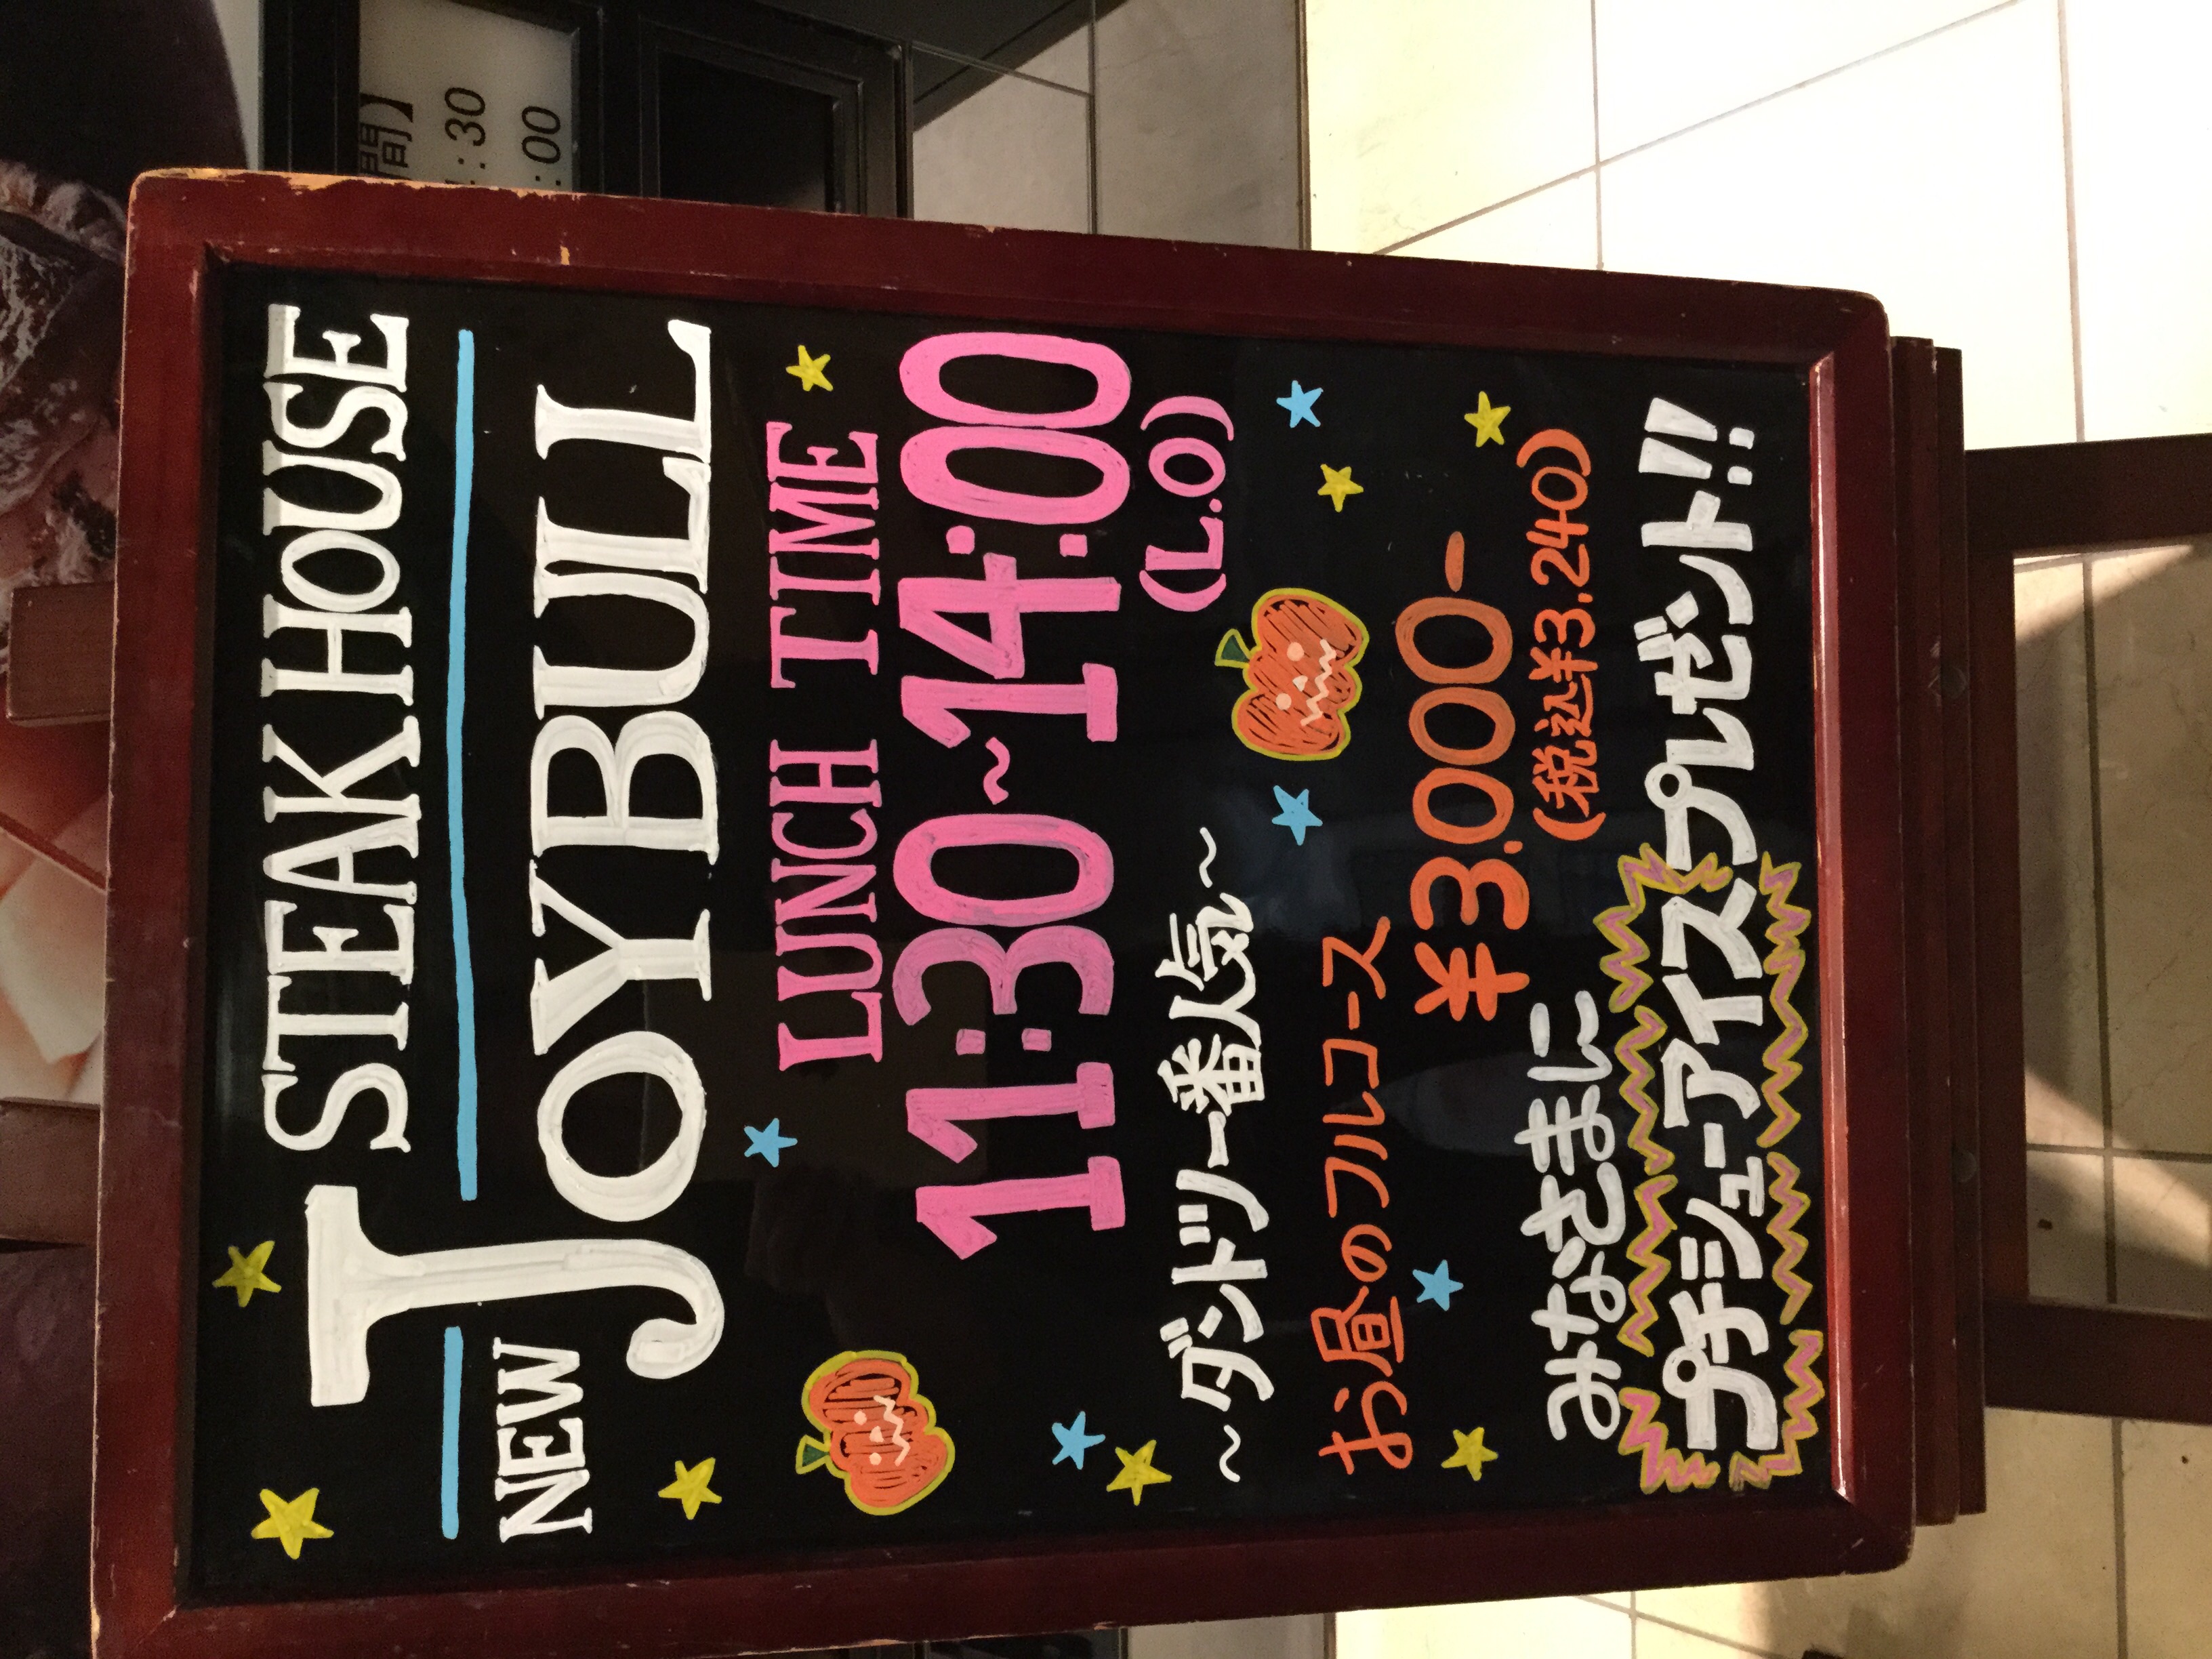 STEAK HOUSE
NEW JOYBULL
LUNCH TIME
11:30~14:00
(L.O)
~ダントツ一番人気~
お昼のフルコース
¥3.000-
(税込¥3.240)
みなさまに
プチシューアイスプレゼント!!
間】
:30
:00